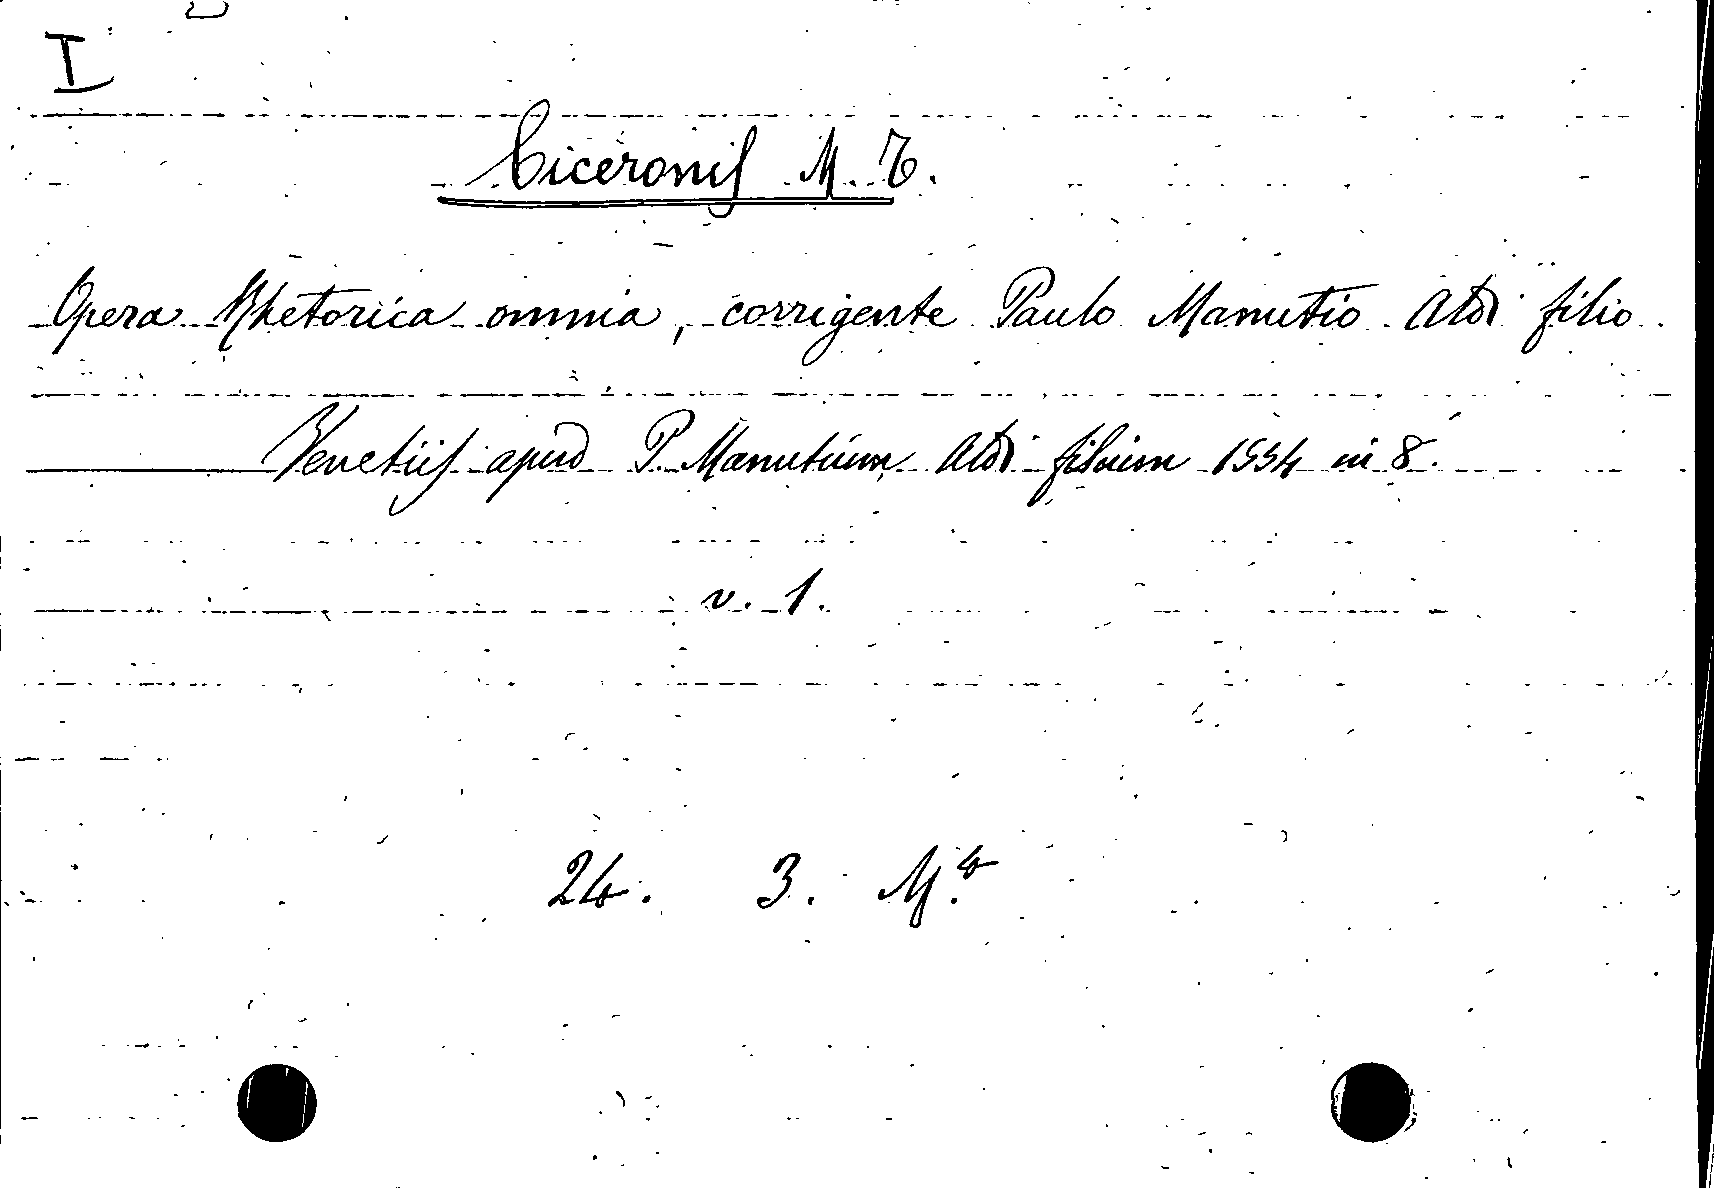 I
Ciceronis M. T.
Opera Rhetorica omnia, corrigente Paulo Manutio Aldi filio
Venetiis apud P. Manutium Aldi filium 1554 in 8.
v. 1.
24. 3. M.4